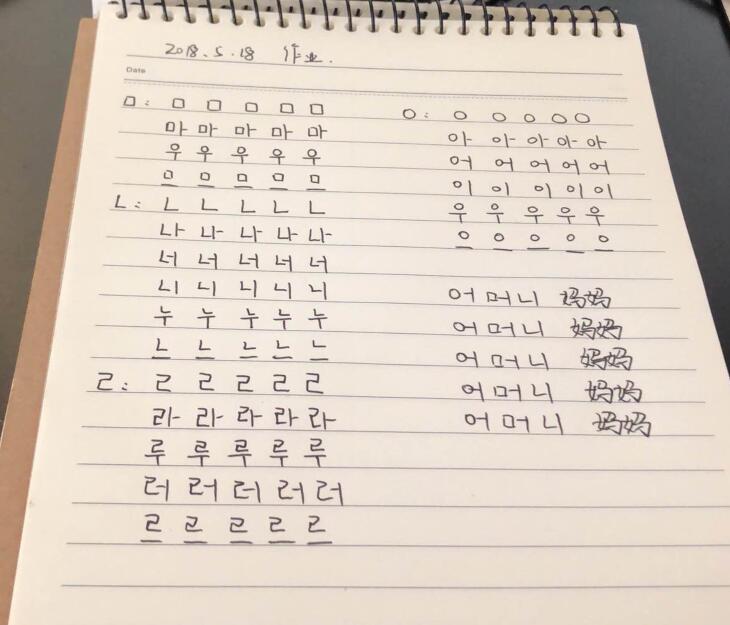 2018.5.18 作业.
Date
ㅁ: ㅁ ㅁ ㅁ ㅁ ㅁ
마 마 마 마 마
우 우 우 우 우
므 므 므 므 므
ㄴ: ㄴ ㄴ ㄴ ㄴ ㄴ
나 나 나 나 나
너 너 너 너 너
니 니 니 니 니
누 누 누 누 누
느 느 느 느 느
ㄹ: ㄹ ㄹ ㄹ ㄹ ㄹ
라 라 라 라 라
루 루 루 루 루
러 러 러 러 러
르 르 르 르 르
ㅇ: ㅇ ㅇ ㅇ ㅇ ㅇ
아 아 아 아 아
어 어 어 어 어
이 이 이 이 이
우 우 우 우 우
으 으 으 으 으
어머니 妈妈
어머니 妈妈
어머니 妈妈
어머니 妈妈
어머니 妈妈